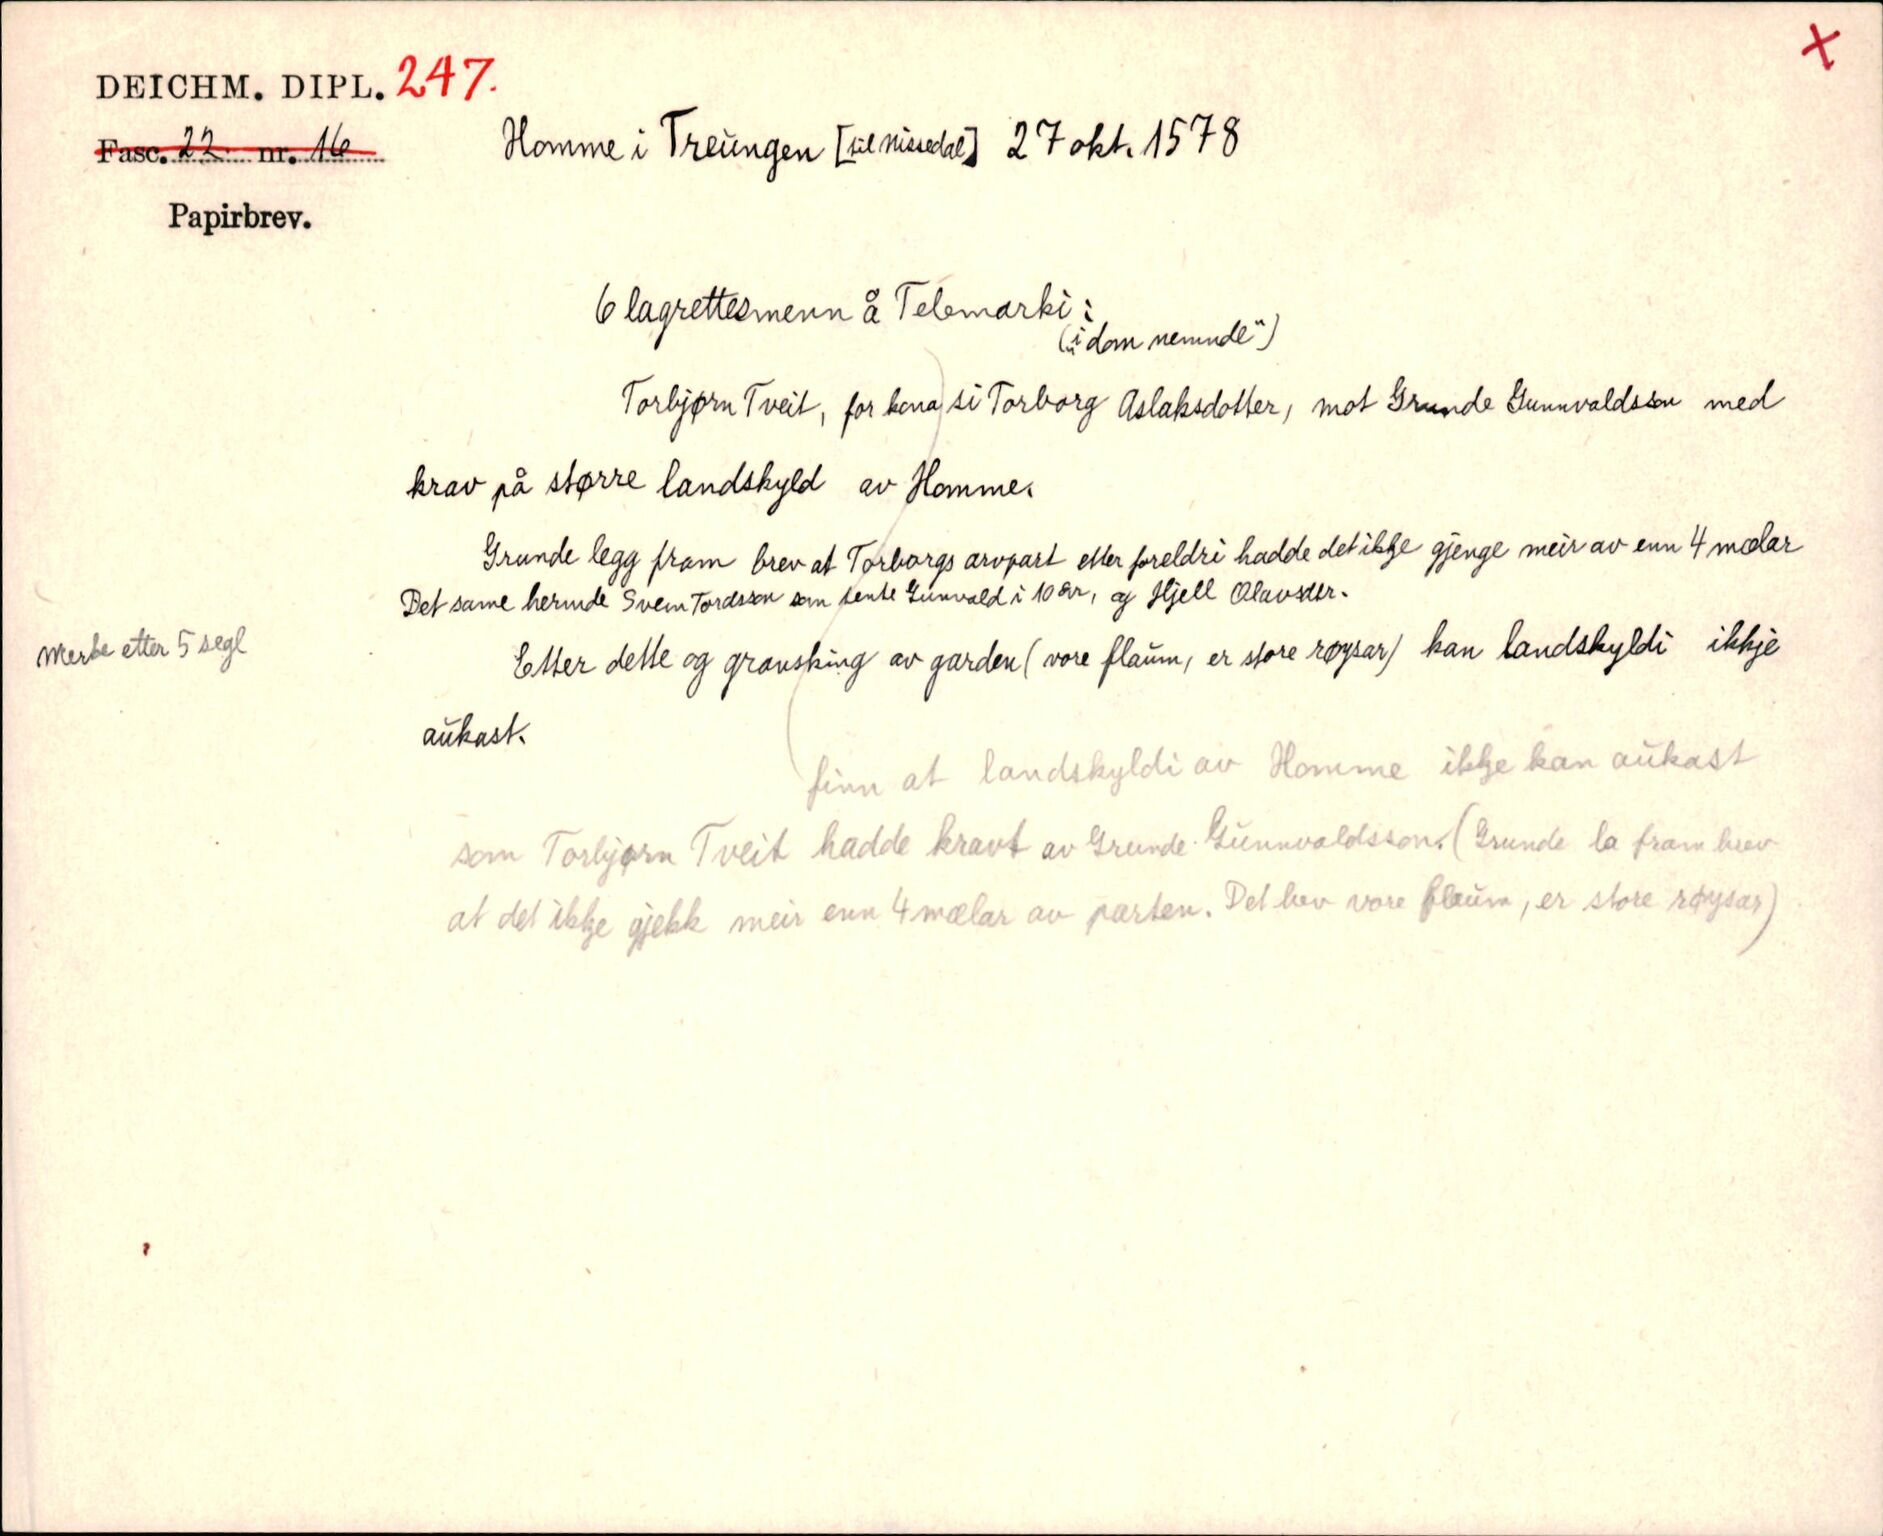 DEICHM. DIPL. 247.
Fasc. 22 nr. 16
Papirbrev.
X
Homme i Treŭngen [til Nissedal] 27 okt. 1578
6 lagrettesmenn å Telemarki:
("i dom nemnde")
Torbjørn Tveit, for kona si Torborg Aslaksdotter, mot Grunde Gunnvaldsson med
krav på større landskyld av Homme.
Grunde legg fram brev at Torborgs arvpart etter foreldri hadde det ikkje gjenge meir av enn 4 mælar
Det same hermde Svein Tordsson som tente Gunnvald i 10 år, og Kjell Olavsdtr.
Merke etter 5 segl
Etter dette og gransking av garden (vore flaŭm, er store røysar) kan landskyldi ikkje
aŭkast.
finn at landskyldi av Homme ikkje kan aŭkast
som Torbjørn Tveit hadde kravt av Grunde Gŭnnvaldsson. (Grunde la fram brev
at det ikkje gjekk meir enn 4 mælar av parten. Det hev vore flaŭm, er store røysar)